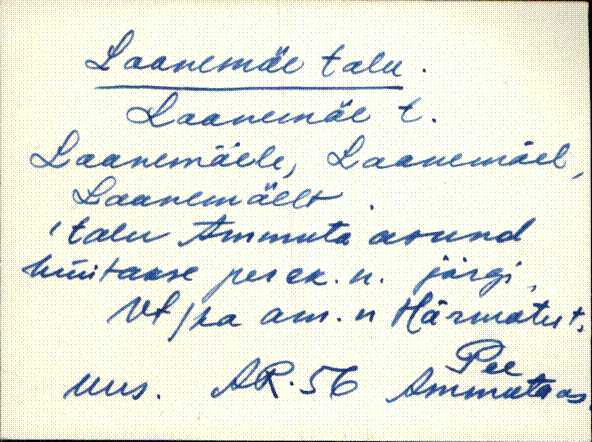 Laanemäe talu.
Laanemäe t.
Laanemäele, Laanemäel,
Laanemäelt.
'talu Ammuta asund
hüütakse perek. n. järgi,
Vt ka am. n Härmatu t.
Pee
uus. AR. 56 Ammuta as.